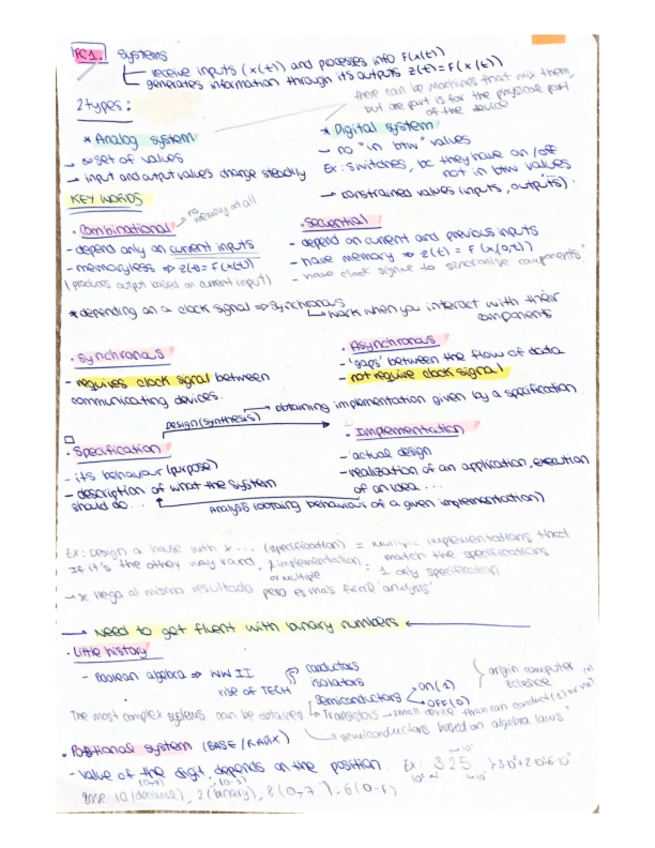 FC1. Systems
receive inputs (x(t)) and processes into F(x(t))
generates information through its outputs z(t) = F(x(t))
there can be machines that mix them,
but one part is for the physical part
of the device
2 types:
* Analog system
→ ∞ set of values
→ input and output values change steadily
* Digital system
→ no "in btw" values
Ex: switches, bc they have on/off
not in btw values
→ constrained values (inputs, outputs).
KEY WORDS
· Combinational → no memory at all
- depend only on current inputs
- memoryless ⇒ z(t) = F(x(t))
(produces output based on current input)
· Sequential
- depend on current and previous inputs
- have memory ⇒ z(t) = F(x(0,t))
- have clock signal to sincronise components
* depending on a clock signal ⇒ synchronous
work when you interact with their
components
· Synchronous
- requires clock signal between
communicating devices.
· Asynchronous
- 'gaps' between the flow of data
- not require clock signal
Design (synthesis) → obtaining implementation given by a specification
· Specification
- its behaviour (purpose)
- description of what the system
should do...
· Implementation
- actual design
- realization of an application, execution
of an idea...
Analysis (obtaining behaviour of a given implementation)
Ex: Design a house with x... (specification) = multiple implementations that
match the specifications
If it's the other way round, 1 implementation = 1 only specification
or multiple
→ llega al mismo resultado pero es más fácil 'analysis'
→ Need to get fluent with binary numbers ←
· Little history
- Boolean algebra ⇒ WW II
rise of TECH
conductors
isolators
semiconductors
on (1)
OFF (0)
origin computer
science
The most complex systems can be obtained
Transistors → small device than can conduct (1) or not
semiconductors based on algebra laws"
· Positional system (BASE / RADIX)
- value of the digit, depends on the position. Ex: 325 3·10²+2·10¹+5·10⁰
Base 10 (decimal), 2 (binary), 8 (0-7), 16 (0-F)